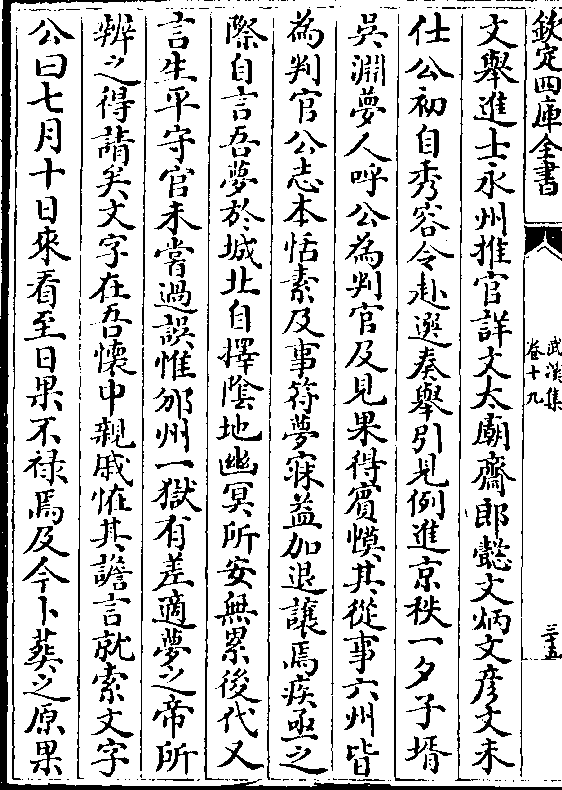 欽定四庫全書
武溪集
卷十九
三十五
文舉進士永州推官詳文太廟齋郎懿文炳文彦文未
仕公初自秀容令赴選奏舉引見例進京秩一夕子壻
吳淵夢人呼公為判官及見果得賓幙其從事六州皆
為判官公志本恬素及事符夢寐益加退讓焉疾亟之
際自言吾夢於城北自擇陰地幽冥所安無累後代又
言生平守官未嘗過誤惟邠州一獄有差適夢之帝所
辨之得請矣文字在吾懷中親戚怪其譫言就索文字
公曰七月十日來看至日果不禄焉及今卜葬之原果